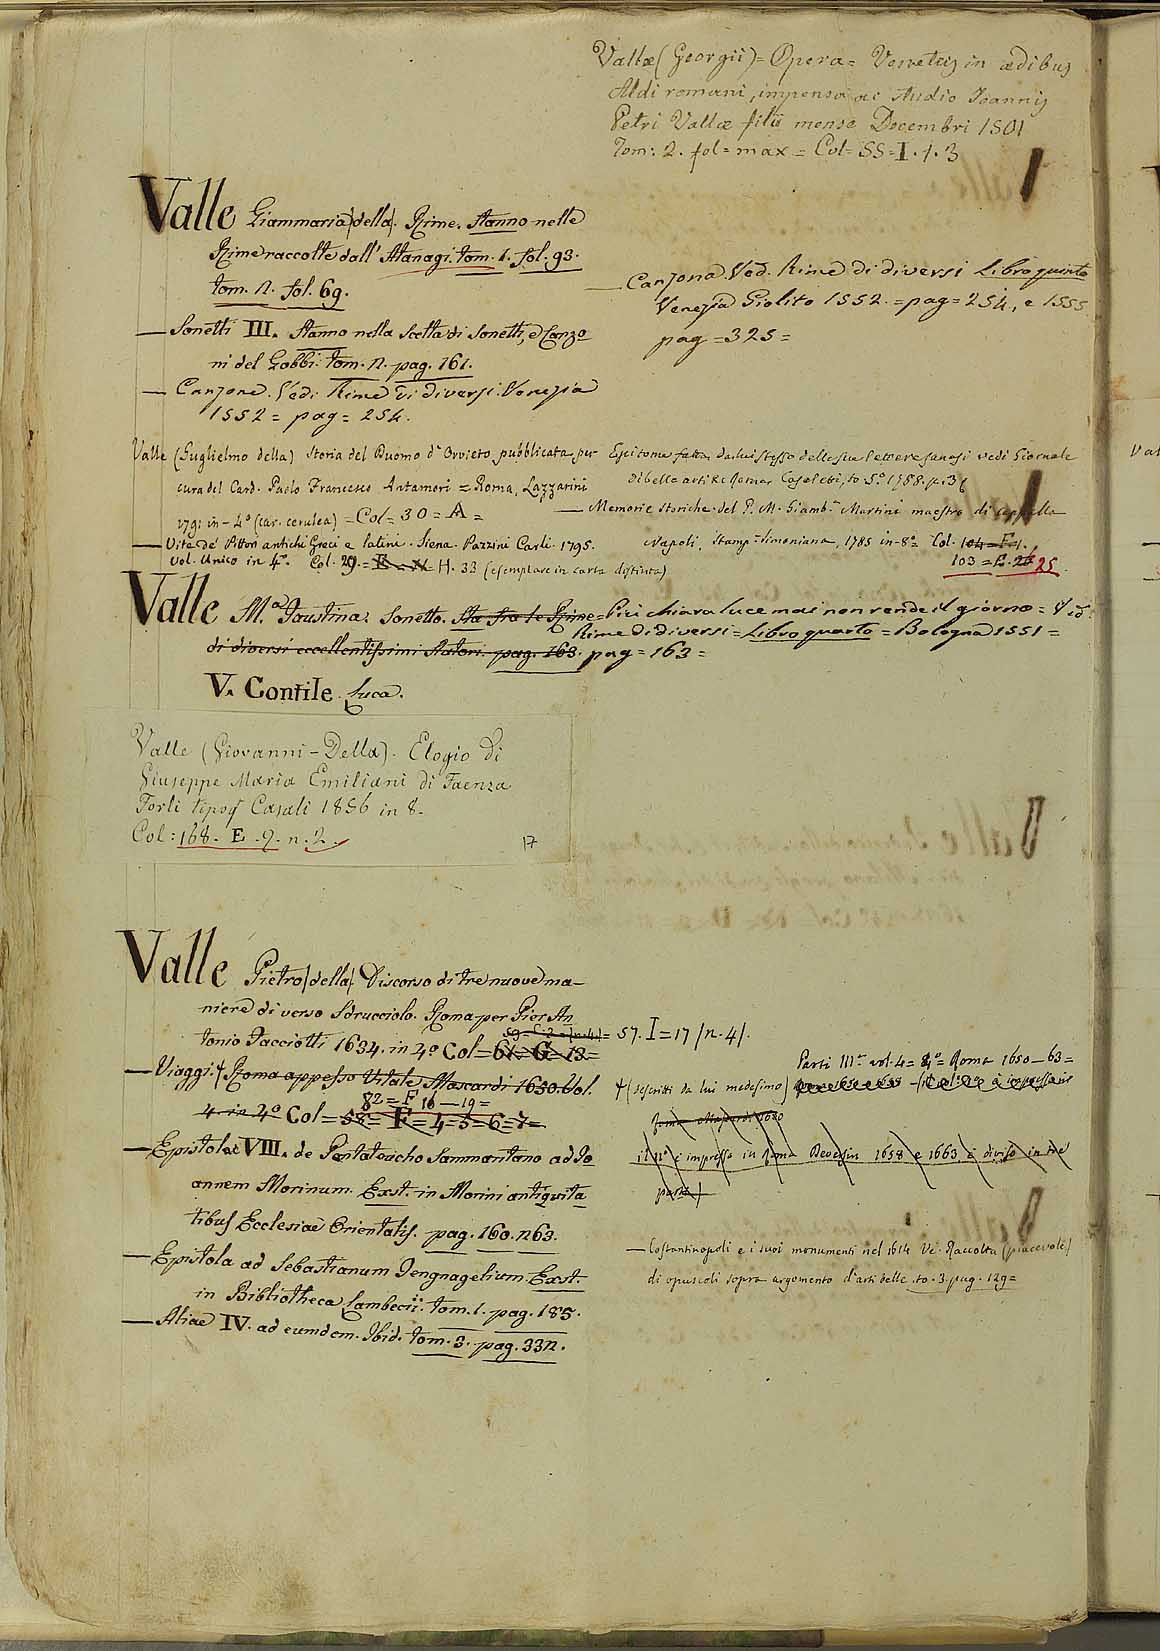 Vallæ (Georgii) = Opera = Venetiis in ædibus
Aldi romani, impensa ac studio Joannis
Petri Vallæ filii mense Decembri 1501
Tom: 2. fol = max = Col = 55 = I. 1. 3
Valle Giammaria (della). Rime. Stanno nelle
Rime raccolte dall' Atanagi. tom. 1. fol. 93.
tom. 2. fol. 69.
— Sonetti III. Stanno nella Scelta di Sonetti, e Canzo
ni del Gobbi. tom. 2. pag. 161.
— Canzone. Vedi Rime di diversi. Venezia
1552 = pag = 254.
— Canzona. Ved. Rime di diversi Libro quinto
Venezia Giolito 1552 = pag = 254, e 1555
pag = 325 =
Valle (Guglielmo della) Storia del Duomo d'Orvieto pubblicata per
cura del Card. Paolo Francesco Antamori = Roma, Lazzarini
1791 in-4º (car. cerulea) = Col = 30 = A =
— Vite de' Pittori antichi Greci e latini. Siena. Pazzini Carli. 1795.
Vol. Unico in 4º. Col. 29. = H. 33 (esemplare in carta distinta)
Epitome fatta da lui stesso delle sue lettere sanesi vedi Giornale
di belle arti &c Roma to. 5º 1788. p. 36
— Memorie storiche del P. M. Giamb. Martini maestro di cappella
Napoli, Stamp. Simoniana, 1785 in-8º Col. 104 = F. 1.
103 = E. 26 25
Valle M.ª Faustina. Sonetto. Sta fra le Rime = Più chiara luce mai non rende il giorno = Ved:
Rime di diversi = Libro quarto = Bologna 1551 =
di diversi eccellentissimi Autori. pag. 163. pag = 163 =
V. Contile Luca.
Valle (Giovanni-Della). Elogio di
Giuseppe Maria Emiliani di Faenza
Forlì tipog Casali 1856 in 8.
Col: 168. E. 9. n. 2.
17
Valle Pietro (della) Discorso di tre nuove ma-
niere di verso Sdrucciolo. Roma per Pier An
tonio Facciotti 1634. in 4º Col = 61 = G = 13 = 57. I = 17 (n. 4).
— Viaggi. † Roma appresso Vitale Mascardi 1650. Vol.
82 = F 16 — 19 =
4 in 4º Col = 58 = F = 4 = 5 = 6 = 7 =
Parti III vol. 4 = 4º = Roma 1650 — 63 =
† (descritti da lui medesimo)
il 2º è impresso in Roma 1658 e 1663, è diviso in tre
parti)
— Epistolae VIII. de Pentateucho Sammaritano ad Jo
annem Morinum. Exst. in Morini antiquita
tibus Ecclesiae Orientalis. pag. 160. 263.
— Epistola ad Sebastianum Tengnagelium. Exst.
in Bibliotheca Lambecii. tom. 1. pag. 185.
— Aliae IV. ad eumdem. Ibid. tom. 3. pag. 332.
— Costantinopoli e i suoi monumenti nel 1614 Ve. Raccolta (piacevole)
di opuscoli sopra argomento d'arti belle. to. 3. pag. 129 =